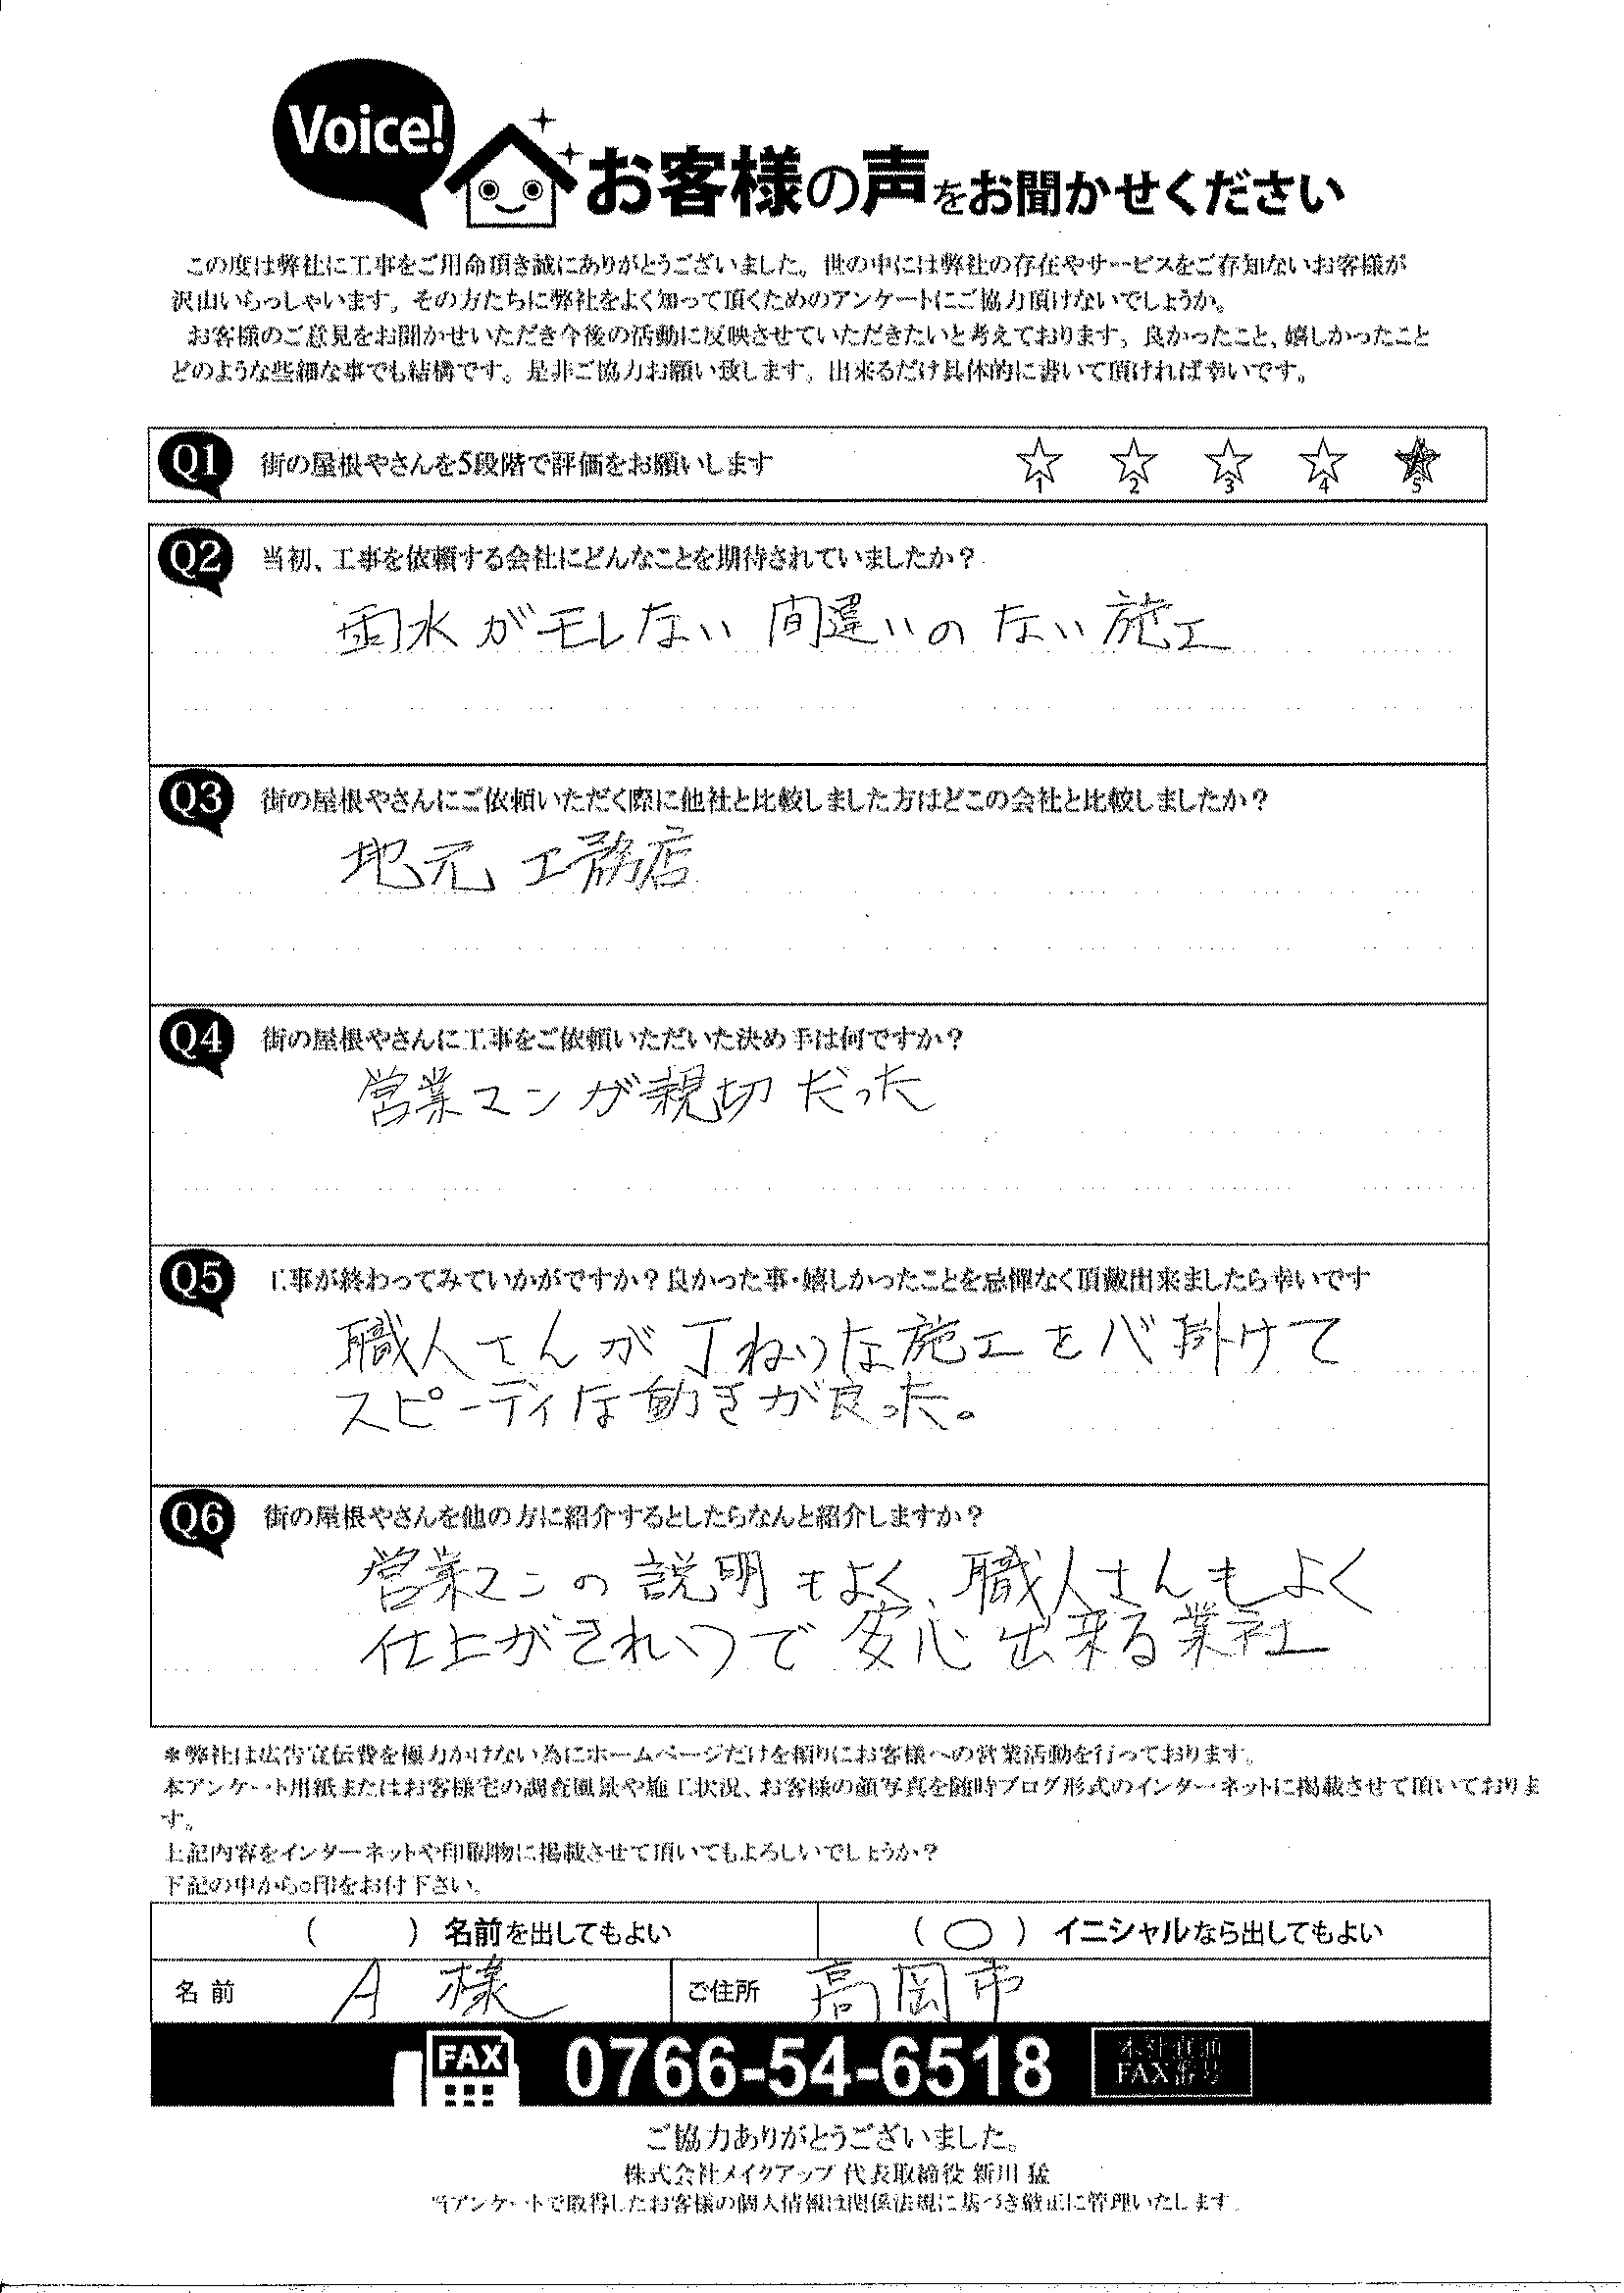 Voice!
お客様の声をお聞かせください
この度は弊社に工事をご用命頂き誠にありがとうございました。世の中には弊社の存在やサービスをご存知ないお客様が
沢山いらっしゃいます。その方たちに弊社をよく知って頂くためのアンケートにご協力頂けないでしょうか。
お客様のご意見をお聞かせいただき今後の活動に反映させていただきたいと考えております。良かったこと、嬉しかったこと
どのような些細な事でも結構です。是非ご協力お願い致します。出来るだけ具体的に書いて頂ければ幸いです。
Q1 街の屋根やさんを5段階で評価をお願いします ☆1 ☆2 ☆3 ☆4 ★5
Q2 当初、工事を依頼する会社にどんなことを期待されていましたか?
雨水がモレない間違いのない施工
Q3 街の屋根やさんにご依頼いただく際に他社と比較しました方はどこの会社と比較しましたか?
地元工務店
Q4 街の屋根やさんに工事をご依頼いただいた決め手は何ですか?
営業マンが親切だった
Q5 工事が終わってみていかがですか?良かった事・嬉しかったことを忌憚なく頂戴出来ましたら幸いです
職人さんが丁ねいな施工を心掛けて
スピーディな動きが良った。
Q6 街の屋根やさんを他の方に紹介するとしたらなんと紹介しますか?
営業マンの説明もよく、職人さんもよく
仕上がきれいで安心出来る業社
*弊社は広告宣伝費を極力かけない為にホームページだけを頼りにお客様への営業活動を行っております。
本アンケート用紙またはお客様宅の調査風景や施工状況、お客様の顔写真を随時ブログ形式のインターネットに掲載させて頂いておりま
す。
上記内容をインターネットや印刷物に掲載させて頂いてもよろしいでしょうか?
下記の中から○印をお付下さい。
( ) 名前を出してもよい (○) イニシャルなら出してもよい
名前 A 様 ご住所 高岡市
FAX 0766-54-6518 本社直通
FAX番号
ご協力ありがとうございました。
株式会社メイクアップ 代表取締役 新川 猛
当アンケートで取得したお客様の個人情報は関係法規に基づき厳正に管理いたします